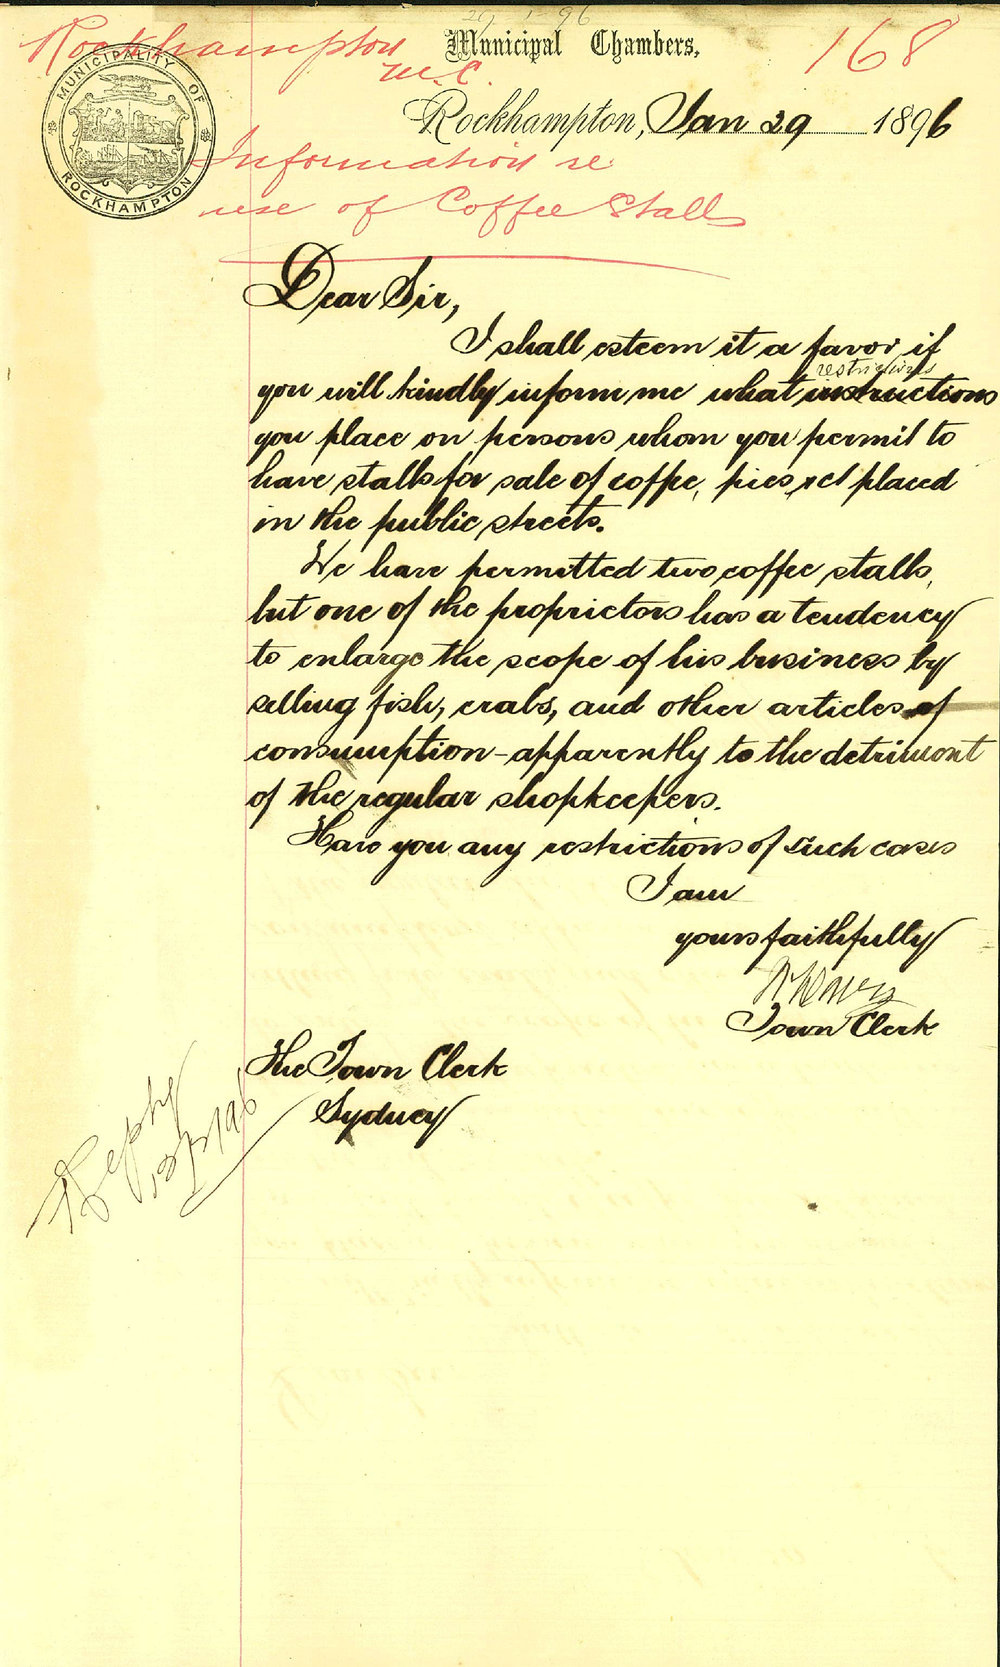 29 1 96
Rockhampton
M.C.
Municipal Chambers,
168
MUNICIPALITY OF
ROCKHAMPTON
Rockhampton, Jan 29 1896
Information re
use of Coffee Stalls
Dear Sir,
I shall esteem it a favor if
restrictions
you will kindly inform me what instructions
you place on persons whom you permit to
have stalls for sale of coffee, pies &ct placed
in the public streets.
We have permitted two coffee stalls,
but one of the proprietors has a tendency
to enlarge the scope of his business by
selling fish, crabs, and other articles of
consumption - apparently to the detriment
of the regular shopkeepers.
Have you any restrictions of such cases
I am
yours faithfully
Town Clerk
The Town Clerk
Sydney